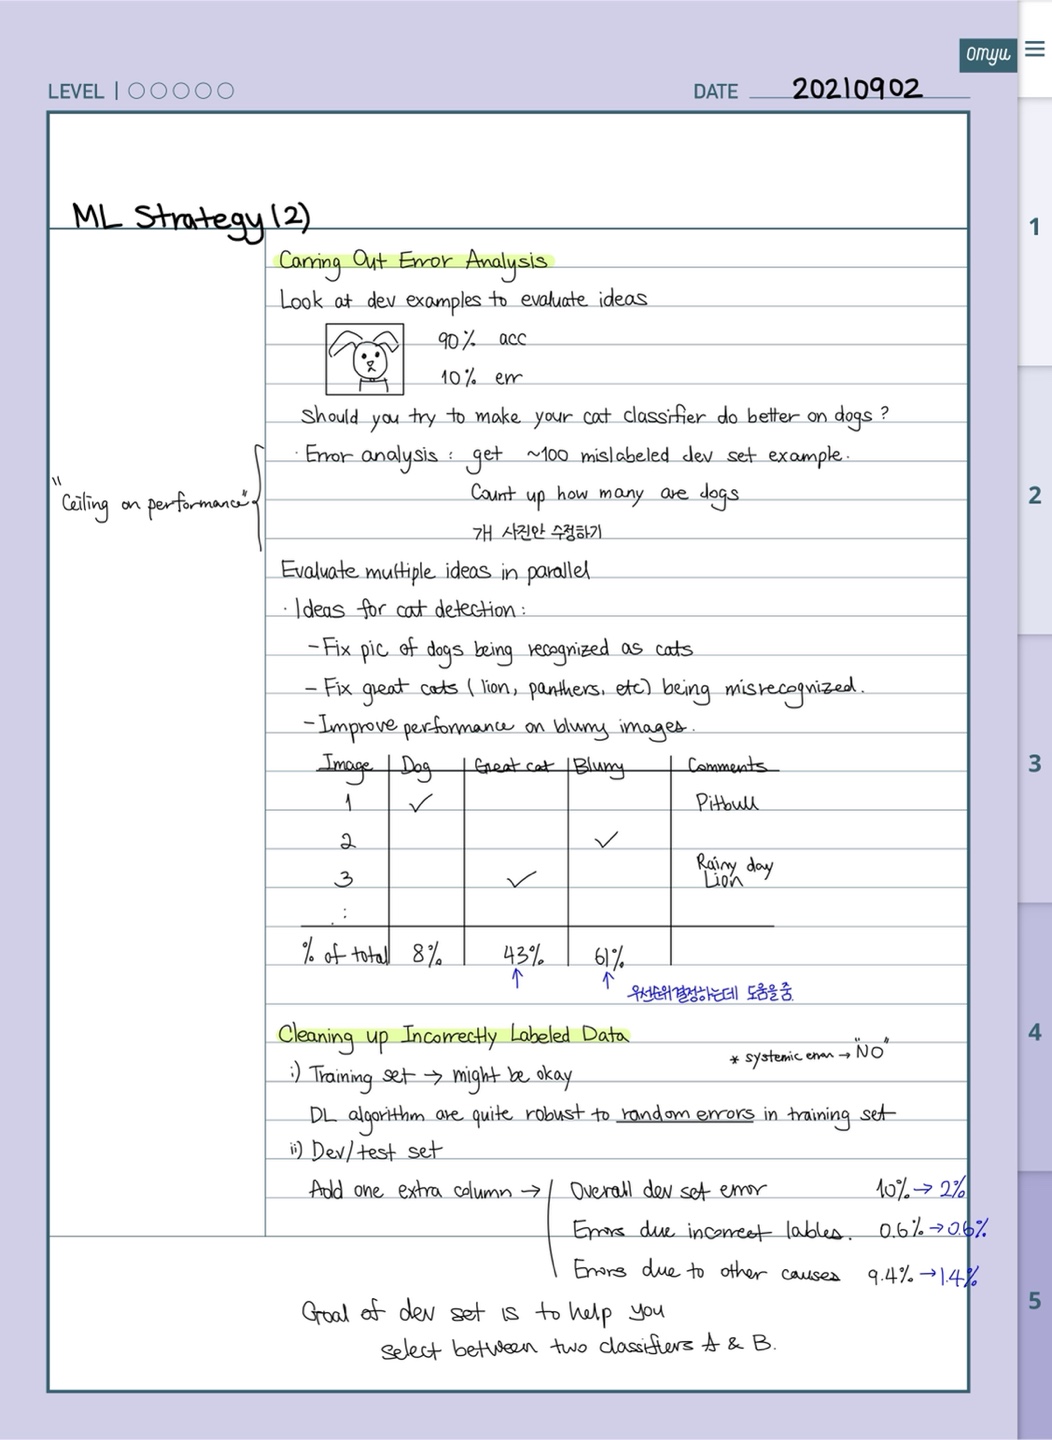 omyu
LEVEL
DATE 20210902
1
2
3
4
5
ML Strategy (2)
Carring Out Error Analysis
Look at dev examples to evaluate ideas
90% acc
10% err
Should you try to make your cat classifier do better on dogs?
"Ceiling on performance"
· Error analysis : get ~100 mislabeled dev set example.
Count up how many are dogs
개 사진만 수정하기
Evaluate multiple ideas in parallel
· Ideas for cat detection :
- Fix pic of dogs being recognized as cats
- Fix great cats (lion, panthers, etc) being misrecognized.
- Improve performance on blurry images.
Image Dog Great cat Blurry Comments
1 ✓ Pitbull
2 ✓
Rainy day
3 ✓ Lion
:
% of total 8% 43% 61%
↑ ↑ 우선순위 결정하는데 도움을 줌.
Cleaning up Incorrectly Labeled Data
* systemic error → "NO"
i) Training set → might be okay
DL algorithm are quite robust to random errors in training set
ii) Dev/test set
Add one extra column → Overall dev set error 10% → 2%
Errors due incorrect lables. 0.6% → 0.6%
Errors due to other causes 9.4% → 1.4%
Goal of dev set is to help you
select between two classifiers A & B.